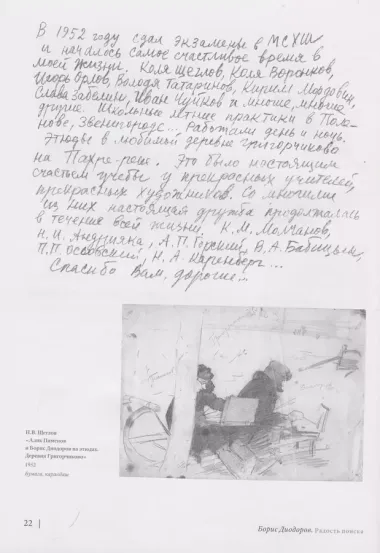 В 1952 году сдал экзамены в МСХШ
и началось самое счастливое время в
моей жизни. Коля Щеглов, Коля Воронков,
Игорь Орлов, Володя Татаринов, Кирилл Мордовин,
Слава Забелин, Иван Чуйков и многие, многие
другие. Школьные летние практики в Поле-
нове, Звенигороде... Работали день и ночь.
Этюды в любимой деревне Григорчиково
на Пахре-реке. Это было настоящим
счастьем учёбы у прекрасных учителей,
прекрасных художников. Со многими
из них настоящая дружба продолжалась
в течение всей жизни. К.М. Молчанов,
Н.И. Андрияка, А.П. Горский, В.А. Бабицын,
П.П. Оссовский, Н.А. Каренберг...
Спасибо Вам, дорогие...
Н.В. Щеглов
и Борис Диодоров на этюдах.
Деревня Григорчиково»
1952
бумага, карандаш
22
Борис Диодоров. Радость поиска